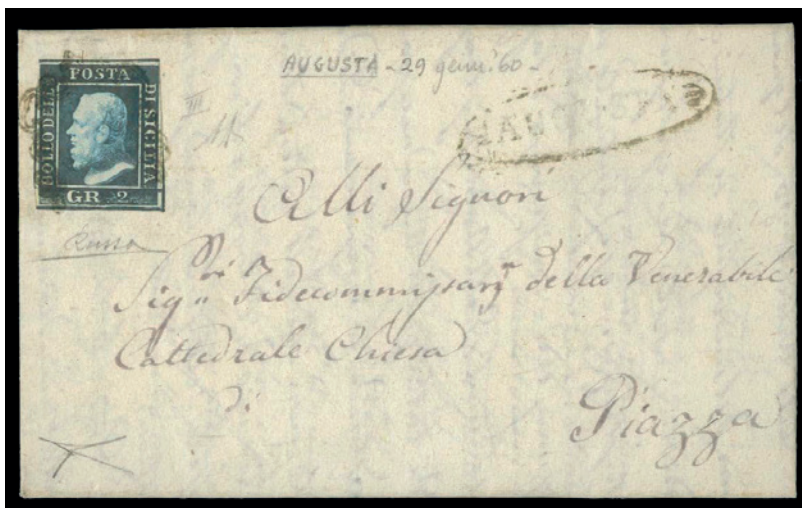 POSTA
BOLLO DELLA
DI SICILIA
GR 2
AUGUSTA - 29 genn. 60 -
III
AUGUSTA
Alli Signori
Sig.ri Fidecommissarj della Venerabile
Cattedrale Chiesa
di
Piazza